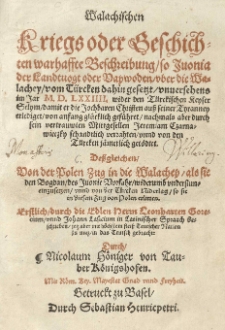 Walachischen
Kriegs oder Geschich-
ten warhaffte Beschreibung / so Juonia
der Landtuogt oder Vaywoden / vber die Wa-
lachey / vom Türcken dahin gesetzt / vnuersehens
im Jar M. D. LXXIIII. wider den Türckischen Keyser
Selym / damit er die Christen auß seiner Tyranney
erlediget / von anfang glücklich gefüret / nachmals aber durch
sein vertrauwten Mitgesellen Jeremiam Czarna-
wieczky schandtlich verrahten / vnnd von den
Türcken jämerlich getödtet.
Deßgleichen /
Von der Polen Zug in die Walachey / als sie
den Bogdan / des Juonie Vorfahr / widerumb vnderstun-
den einzusetzen / vnnd von der Türcken Niderlag / so sie
in diesem Zug von Polen erlitten.
Erstlich / durch die Edlen Herrn Leonharten Gore-
cium / vnnd Johann Lasicium in Latinischer Spraach be-
schrieben / jetz aber mit höchstem fleiß Teutscher Nation
zu nutz in das Teutsch gebracht
Durch /
Nicolaum Höniger von Tau-
ber Königshofen.
Mit Röm. Key. Mayestat Gnad vnnd Freyheit.
Getruckt zu Basel /
Durch Sebastian Henricpetri.